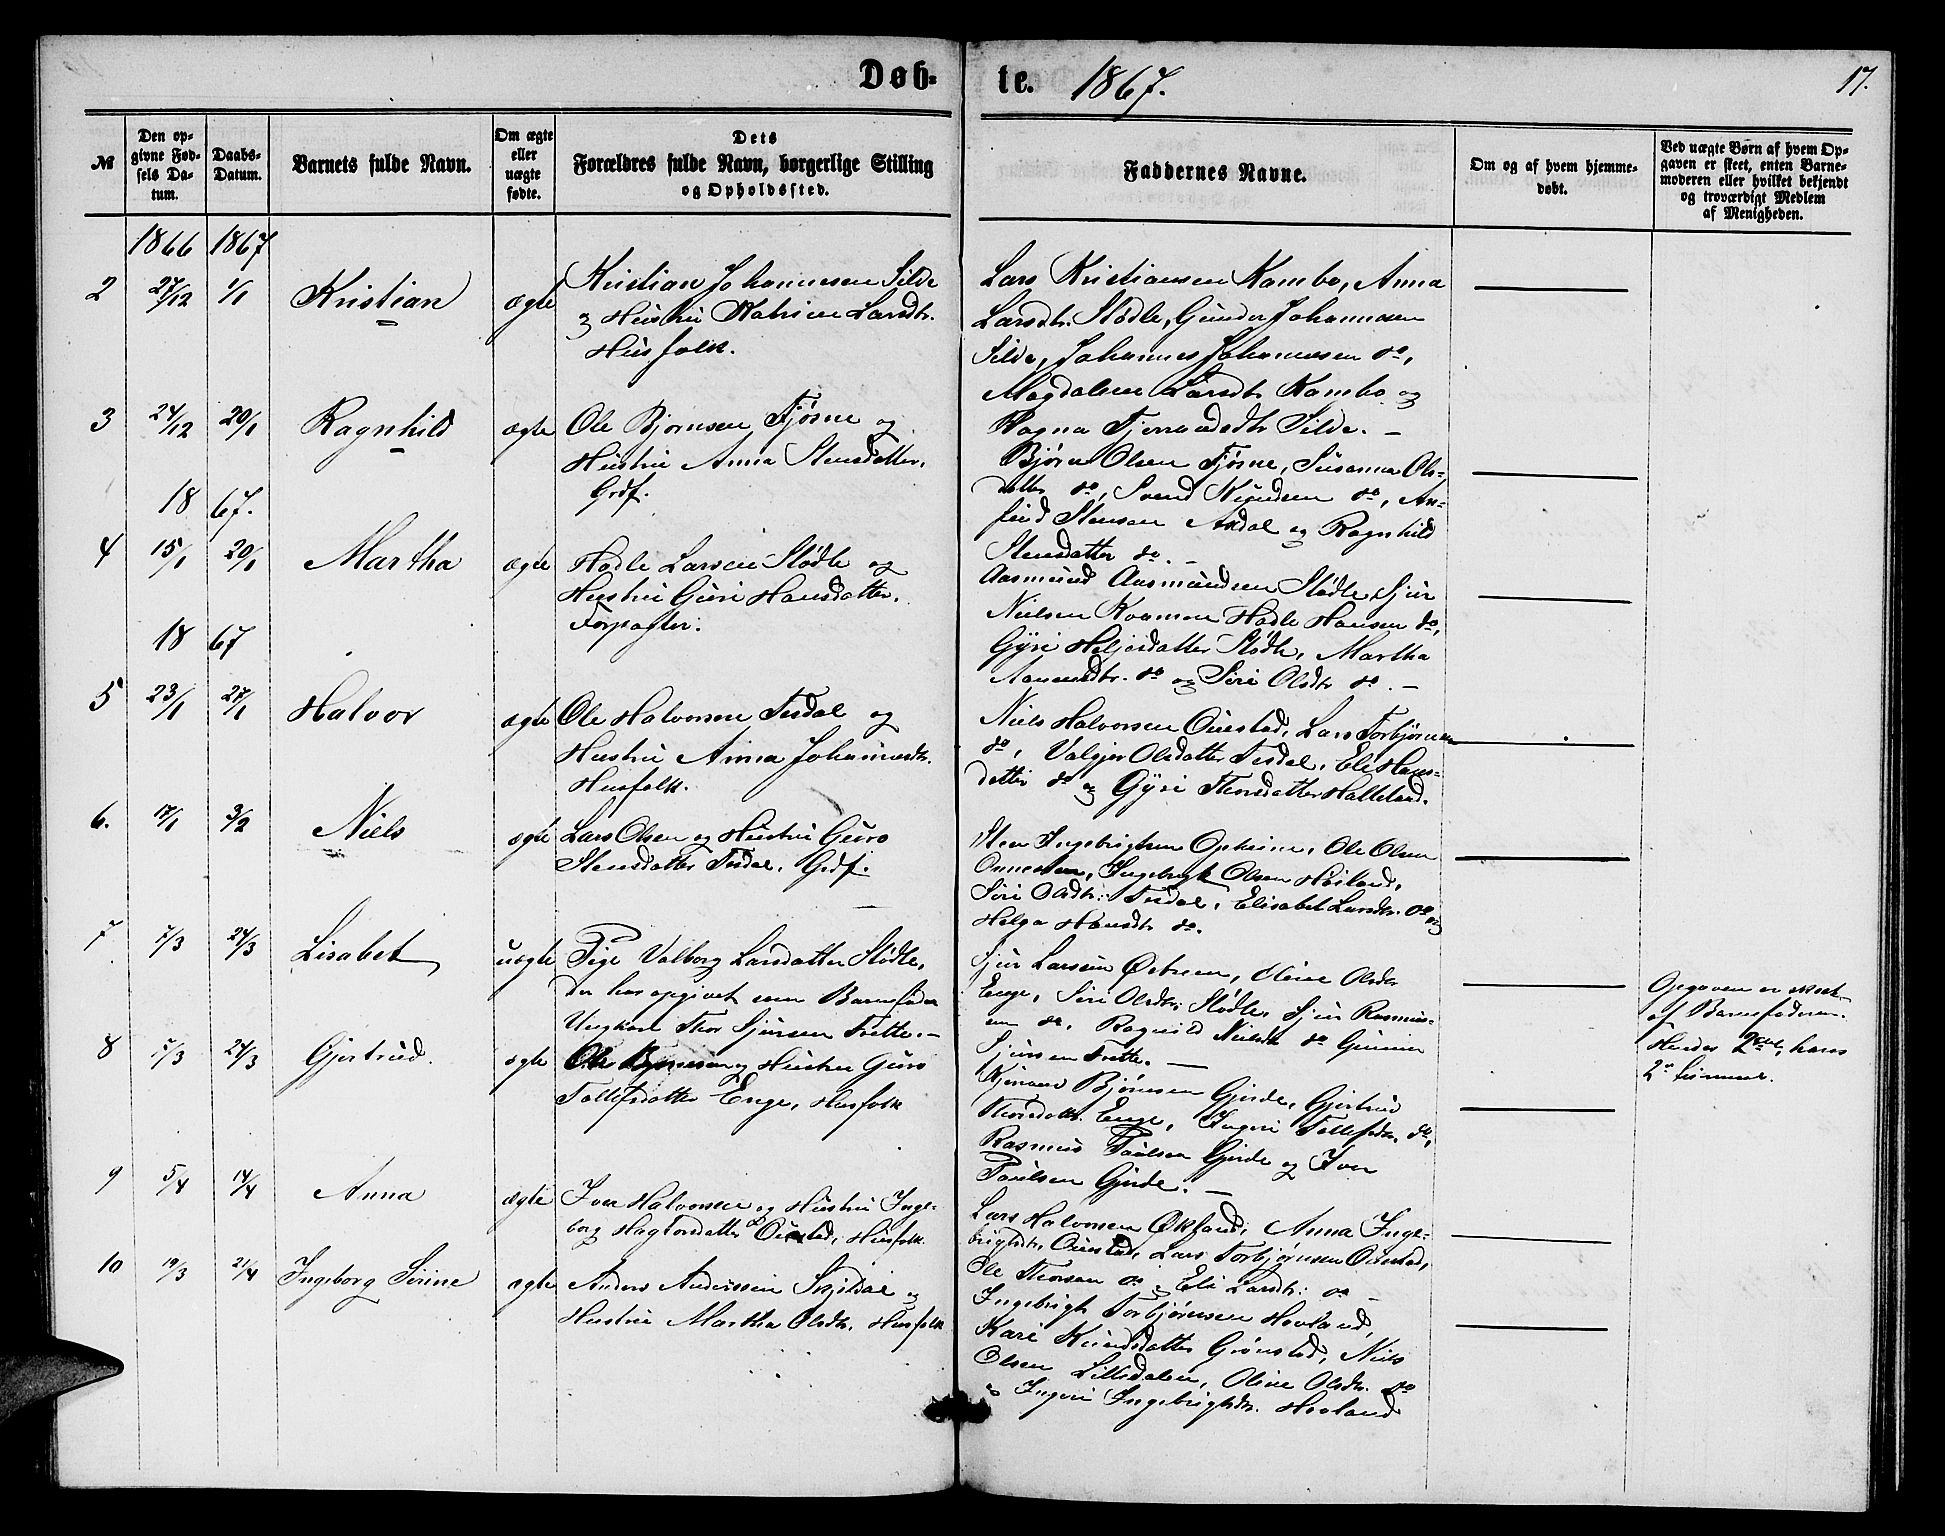 Døb-
te. 1867.
17.
№
Den op-
givne Fød-
sels Da-
tum.
Daabs-
Datum.
Barnets fulde Navn.
Om ægte
eller
uægte
fødte.
Dets
Forældres fulde Navn, borgerlige Stilling
og Opholdssted.
Faddernes Navne.
Om og af hvem hjemme-
døbt.
Ved uægte Børn af hvem Op-
gaven er skeet, enten Barne-
moderen eller hvilket bekjendt
og troværdigt Medlem
af Menigheden.
1866 1867
2 27/12 1/1 Kristian ægte Kristian Johannesen Silde
og Hustru Katrine Larsdtr.
Husfolk.
Lars Kristiansen Kambo, Anna
Larsdtr. Stødle, Gunder Johannesen
Silde, Johannes Johannesen do,
Magdalene Larsdtr Kambo og
Ragna Silde. —
3 24/12 20/1 Ragnhild ægte Ole Bjørnsen Fjøsne og
Hustru Anna Stensdatter,
Grdf.
Bjørn Olsen Fjøsne, Susanna Ols-
datter do, Svend Knudsen do, An-
find Stensen Asdal og Ragnhild
Stensdatter do. —
18 67.
4 15/1 20/1 Martha ægte Hadle Larsen Stødle og
Hustru Guri Hansdatter,
Forpagter.
Aasmund Aasmundsen Stødle, Sjur
Nielsen Hadle Hansen do,
Gyri Heljesdatter Stødle, Martha
do og Siri Olsdtr do. —
18 67
5 23/1 27/1 Halvor ægte Ole Halvorsen Tesdal og
Hustru Anna Johannesdtr.
Husfolk.
Niels Halvorsen Ouestad, Lars Torbjørnsen
do, Valgjer Olsdatter Tesdal, Eli Hans-
datter do og Gyri Thorsdatter Halleland.
6. 17/1 3/2 Niels ægte Lars Olsen og Hustru Guro
Stensdatter Tesdal, Grdf.
Sten Ingebrigtsen Opheim, Ole Olsen
Ingebrigt Olsen Høiland,
Siri Olsdtr. Tesdal, Elisabet Larsdtr. do og
Helga Hansdtr do.
7 7/3 24/3 Lisabet uægte Pige Valborg Larsdatter Stødle,
der har opgivet som Barnefader
Ungkarl Thor Sjursen Frette. —
Sjur Larsen Østreim, Oline Olsdtr
Enge, Siri Olsdtr. Stødle, Sjur Rasmus-
sen do, Ragnild Nielsdtr do Gunnar
Sjursen Frette. —
Opgaven er skeet
af Barnefaderen.
Hendes 2det, hans
2det Leiermaal.
8 5/3 24/3 Gjertrud. ægte Ole og Hustru Guro
Tollefsdatter Enge, Husfolk
Bjørnsen Gjerde, Gjertrud
Thorsdatt. Enge, Ingeri Tollefsdtr. do,
Rasmus Paulsen Gjerde og Iver
Paulsen Gjerde. —
9 5/4 14/4 Anna ægte Iver Halvorsen og Hustru Inge-
borg Hagtorsdatter Ouestad, Husfolk
Lars Halvorsen Økland, Anna Inge-
brigtsdtr. Ouestad, Lars Torbjørnsen Ouestad,
Ole Thorsen do og Eli Larsdtr: do —
10 19/3 21/4 Ingeborg Sirine ægte Anders Anderssen Skjeldal og
Hustru Martha Olsdtr. Husfolk
Ingebrigt Torbjørnsen Hovland,
Kari Knudsdatter Grønstad, Niels
Olsen Lillesdalen, Oline Olsdtr. do
og Ingeri Ingebrigtsdtr. Hovland